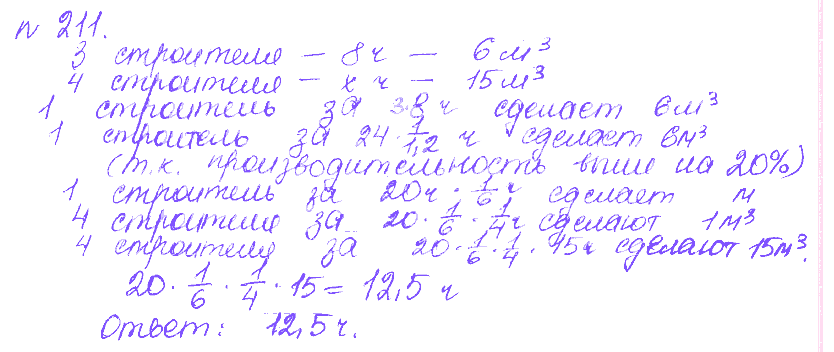 № 211.
3 строителя – 8 ч – 6 м³
4 строителя – x ч – 15 м³
1 строитель за 3·8 ч сделает 6 м³
1 строитель за 24 · 1/1,2 ч сделает 6 м³
(т.к. производительность выше на 20%)
1 строитель за 20 ч · 1/6 ч сделает м
4 строителя за 20 · 1/6 · 1/4 ч сделают 1 м³
4 строителя за 20 · 1/6 · 1/4 · 15 ч сделают 15 м³.
20 · 1/6 · 1/4 · 15 = 12,5 ч
Ответ: 12,5 ч.